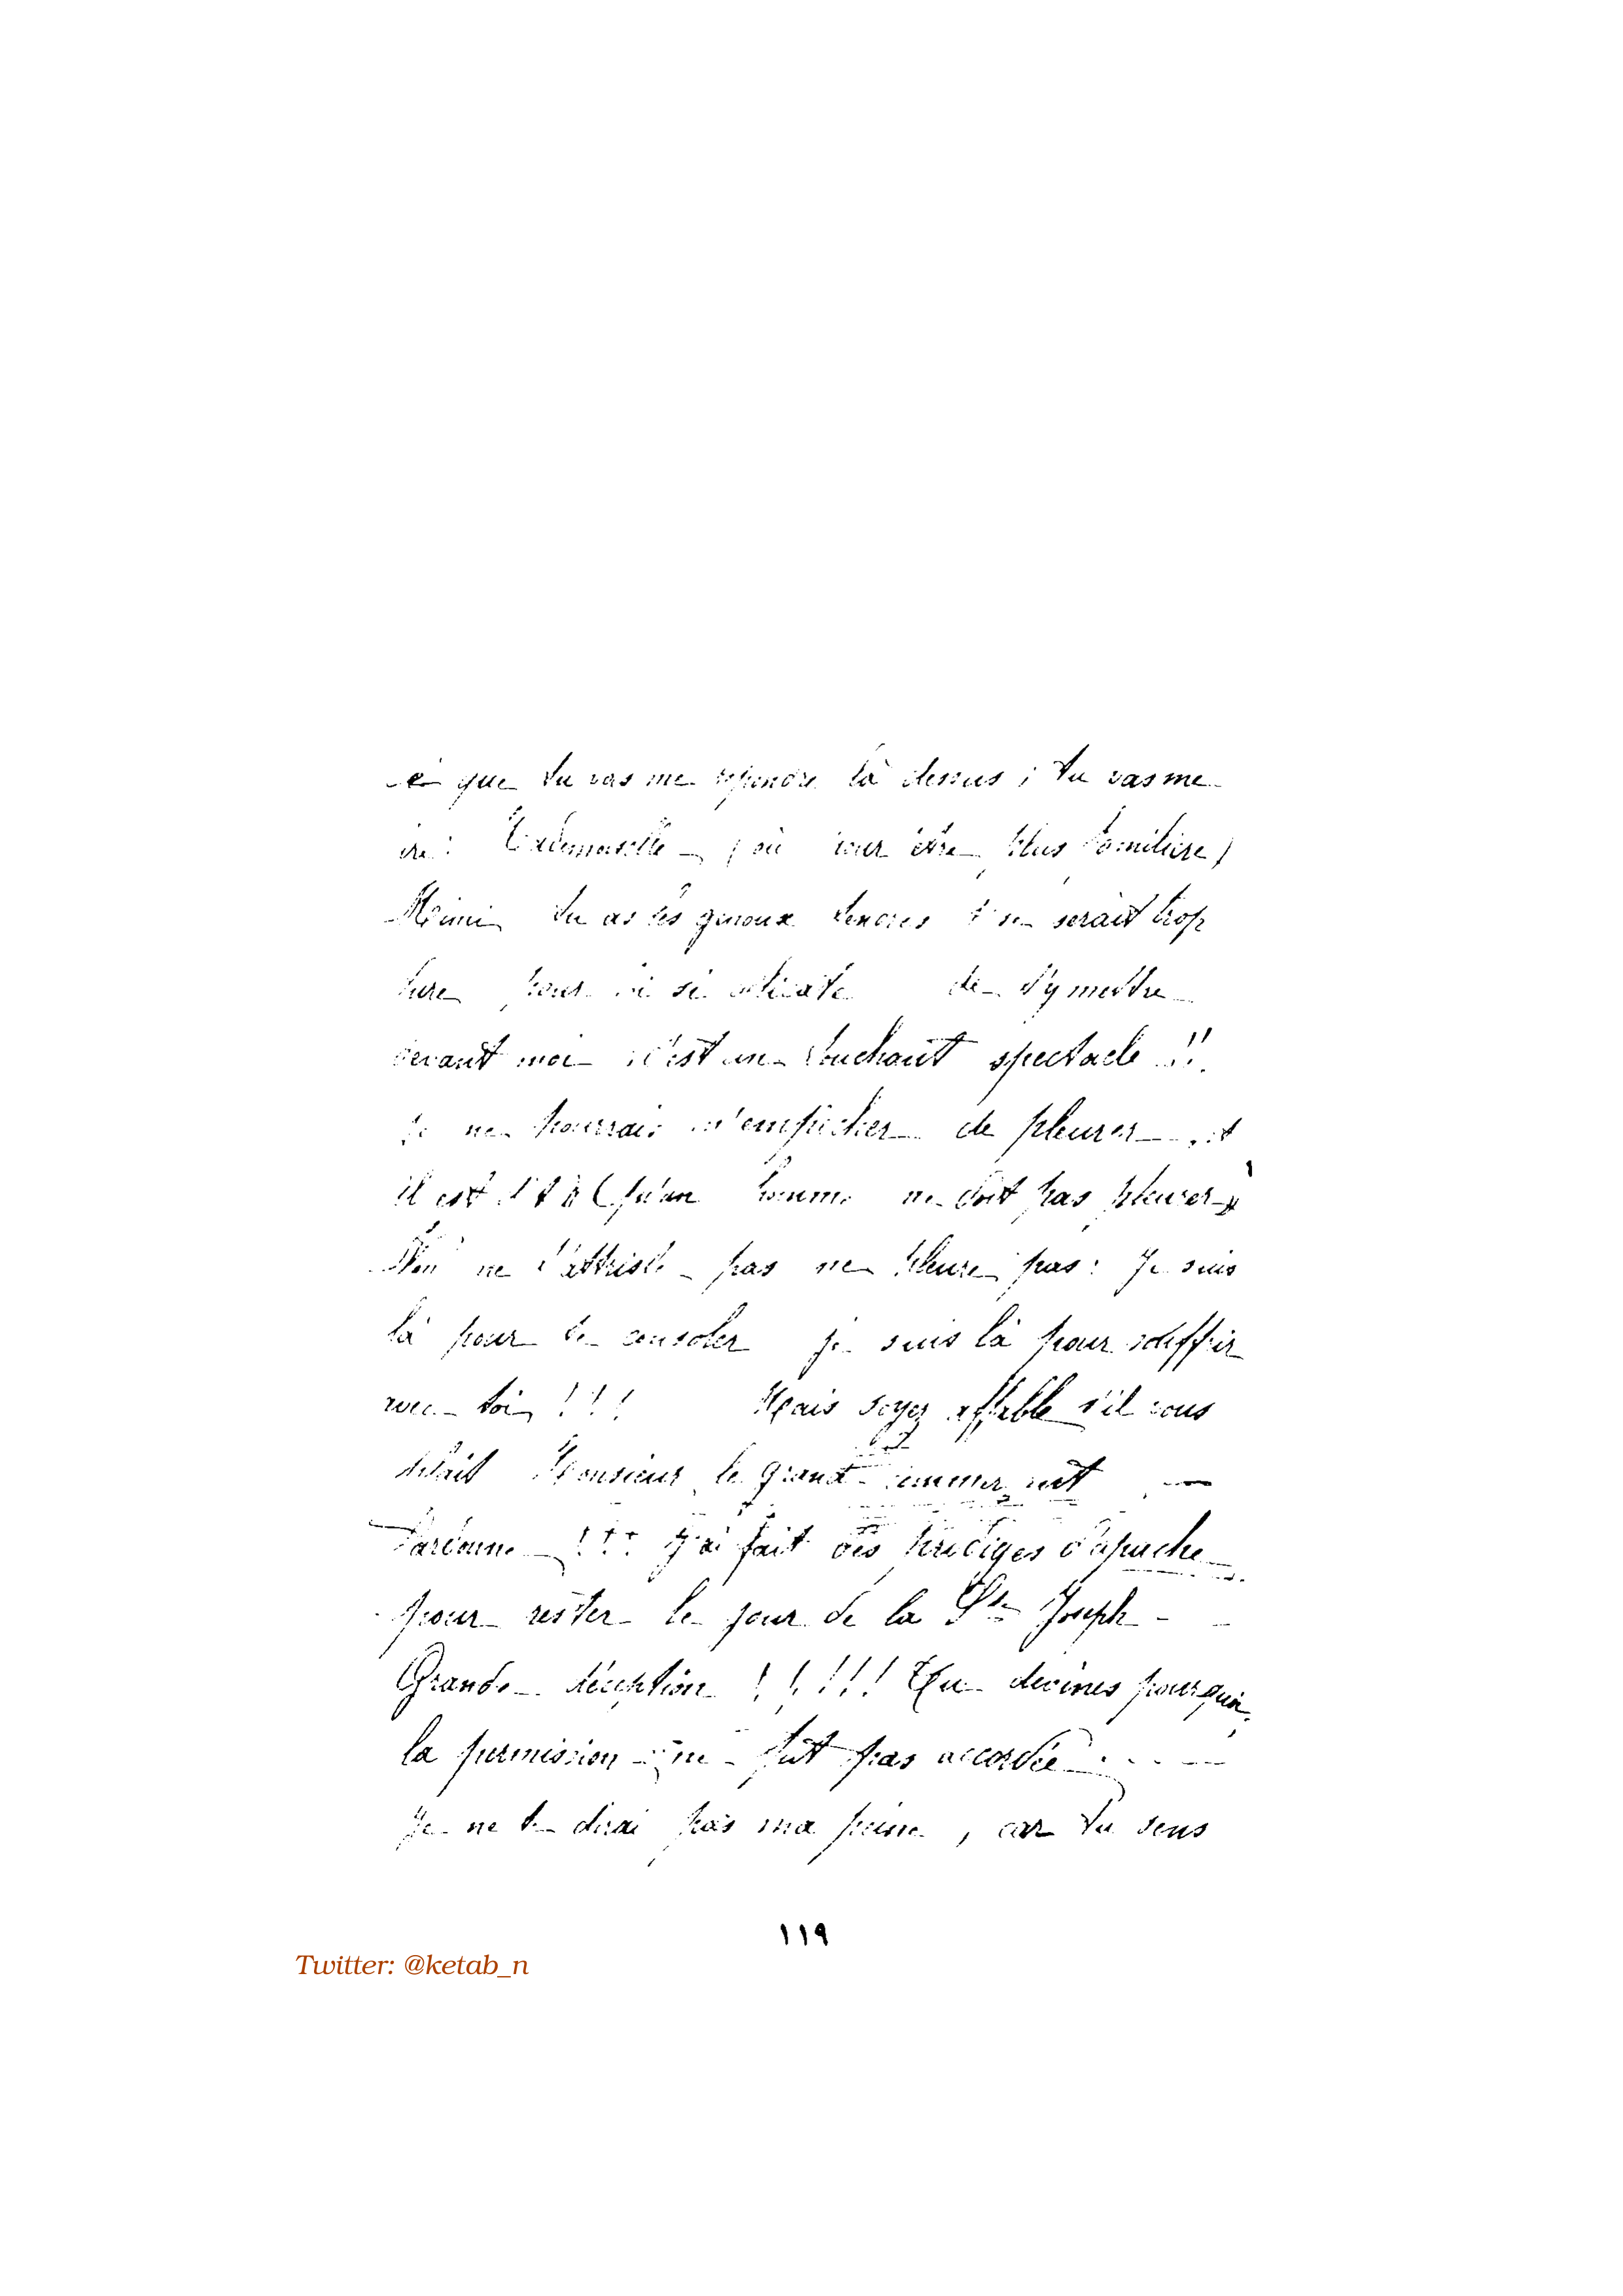 que tu vas me répondre là dessus ; tu vas me
Mademoiselle (où pour être plus familière)
Mimi tu as les genoux tendres serait trop
pour si délicate de t'y mettre
devant moi c'est un touchant spectacle !!
Je ne pourrais m'empêcher de pleurer et
il est (qu'un homme ne doit pas pleurer)
ne t'attriste pas ne pleure pas : Je suis
là pour te consoler je suis là pour souffrir
avec toi !!! Mais soyez affable s'il vous
plait Monsieur le grand
Pardonne !!! J'ai fait des prodiges
pour rester le jour de la Ste Joseph -
Grande déception !!!!! Tu devines pourquoi
la permission ne fut pas accordée
Je ne te dirai pas ma peine, car tu sens
١١٩
Twitter: @ketab_n